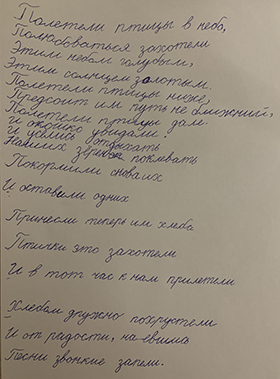 Полетели птицы в небо,
Полюбоваться захотели
Этим небом голубым,
Этим солнцем золотым.
Полетели птицы ниже,
Предстоит им путь не ближний,
Полетели птицы дале.
И окошко увидали!
И уселись отдыхать
Наших зёрен поклевать
Покормили снова их
И оставили одних
Принесли теперь им хлеба
Птички это захотели
И в тот час к нам прилетели
Хлебом дружно похрустели
И от радости, наевшись
Песни звонкие запели.